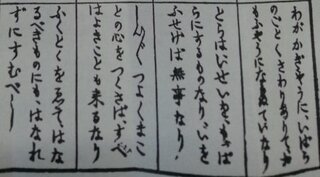 わがかぎやうに、いばら
のごとくさわりありて、お
もふやうにならぬていなり
とらはいせい
らにするものなり、いを
ふせげば無事なり
しん〲つよくまこ
との心をつくさば、すべ
てはよきことも来るなり
ふくとくをゑて、はな
るべきものにも、はなれ
ずにすむべし